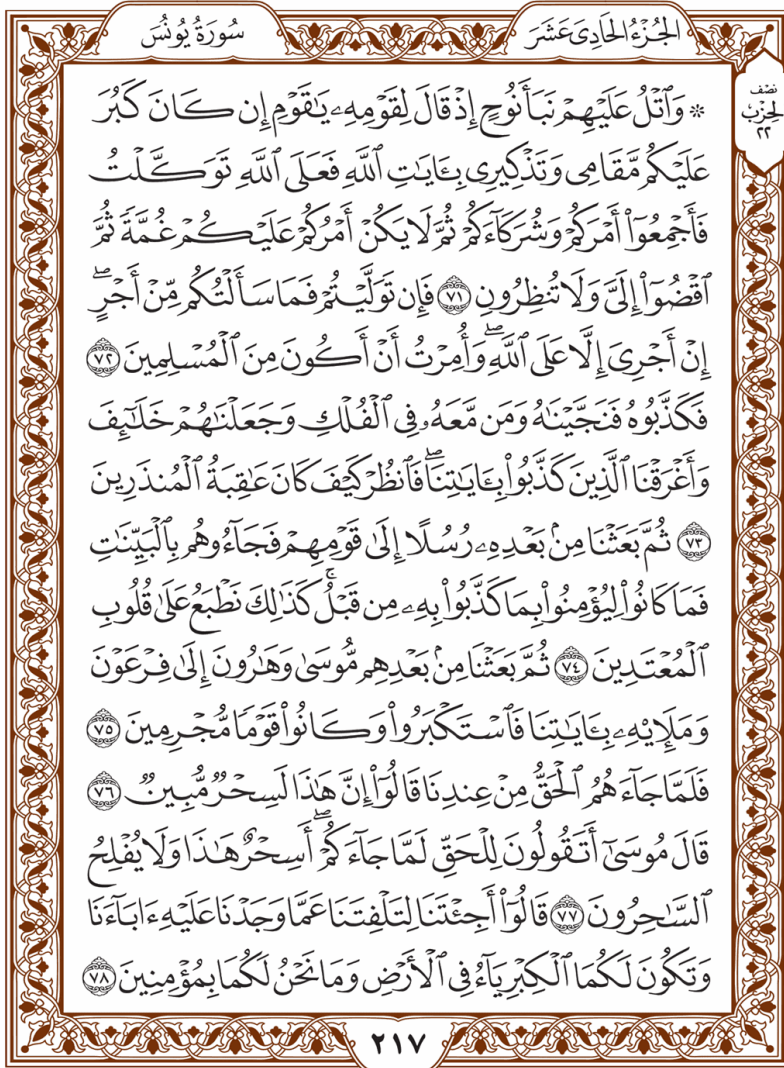 الجُزْءُ الحَادِيَ عَشَرَ
سُورَةُ يُونُسَ
نصف
الحِزْبِ
٢٢
۞ وَٱتْلُ عَلَيْهِمْ نَبَأَ نُوحٍ إِذْ قَالَ لِقَوْمِهِۦ يَٰقَوْمِ إِن كَانَ كَبُرَ
عَلَيْكُم مَّقَامِى وَتَذْكِيرِى بِـَٔايَٰتِ ٱللَّهِ فَعَلَى ٱللَّهِ تَوَكَّلْتُ
فَأَجْمِعُوٓا۟ أَمْرَكُمْ وَشُرَكَآءَكُمْ ثُمَّ لَا يَكُنْ أَمْرُكُمْ عَلَيْكُمْ غُمَّةً ثُمَّ
ٱقْضُوٓا۟ إِلَىَّ وَلَا تُنظِرُونِ ٧١ فَإِن تَوَلَّيْتُمْ فَمَا سَأَلْتُكُم مِّنْ أَجْرٍ ۖ
إِنْ أَجْرِىَ إِلَّا عَلَى ٱللَّهِ ۖ وَأُمِرْتُ أَنْ أَكُونَ مِنَ ٱلْمُسْلِمِينَ ٧٢
فَكَذَّبُوهُ فَنَجَّيْنَٰهُ وَمَن مَّعَهُۥ فِى ٱلْفُلْكِ وَجَعَلْنَٰهُمْ خَلَٰٓئِفَ
وَأَغْرَقْنَا ٱلَّذِينَ كَذَّبُوا۟ بِـَٔايَٰتِنَا ۖ فَٱنظُرْ كَيْفَ كَانَ عَٰقِبَةُ ٱلْمُنذَرِينَ
٧٣ ثُمَّ بَعَثْنَا مِنۢ بَعْدِهِۦ رُسُلًا إِلَىٰ قَوْمِهِمْ فَجَآءُوهُم بِٱلْبَيِّنَٰتِ
فَمَا كَانُوا۟ لِيُؤْمِنُوا۟ بِمَا كَذَّبُوا۟ بِهِۦ مِن قَبْلُ ۚ كَذَٰلِكَ نَطْبَعُ عَلَىٰ قُلُوبِ
ٱلْمُعْتَدِينَ ٧٤ ثُمَّ بَعَثْنَا مِنۢ بَعْدِهِم مُّوسَىٰ وَهَٰرُونَ إِلَىٰ فِرْعَوْنَ
وَمَلَإِي۟هِۦ بِـَٔايَٰتِنَا فَٱسْتَكْبَرُوا۟ وَكَانُوا۟ قَوْمًا مُّجْرِمِينَ ٧٥
فَلَمَّا جَآءَهُمُ ٱلْحَقُّ مِنْ عِندِنَا قَالُوٓا۟ إِنَّ هَٰذَا لَسِحْرٌ مُّبِينٌ ٧٦
قَالَ مُوسَىٰٓ أَتَقُولُونَ لِلْحَقِّ لَمَّا جَآءَكُمْ ۖ أَسِحْرٌ هَٰذَا وَلَا يُفْلِحُ
ٱلسَّٰحِرُونَ ٧٧ قَالُوٓا۟ أَجِئْتَنَا لِتَلْفِتَنَا عَمَّا وَجَدْنَا عَلَيْهِ ءَابَآءَنَا
وَتَكُونَ لَكُمَا ٱلْكِبْرِيَآءُ فِى ٱلْأَرْضِ وَمَا نَحْنُ لَكُمَا بِمُؤْمِنِينَ ٧٨
٢١٧